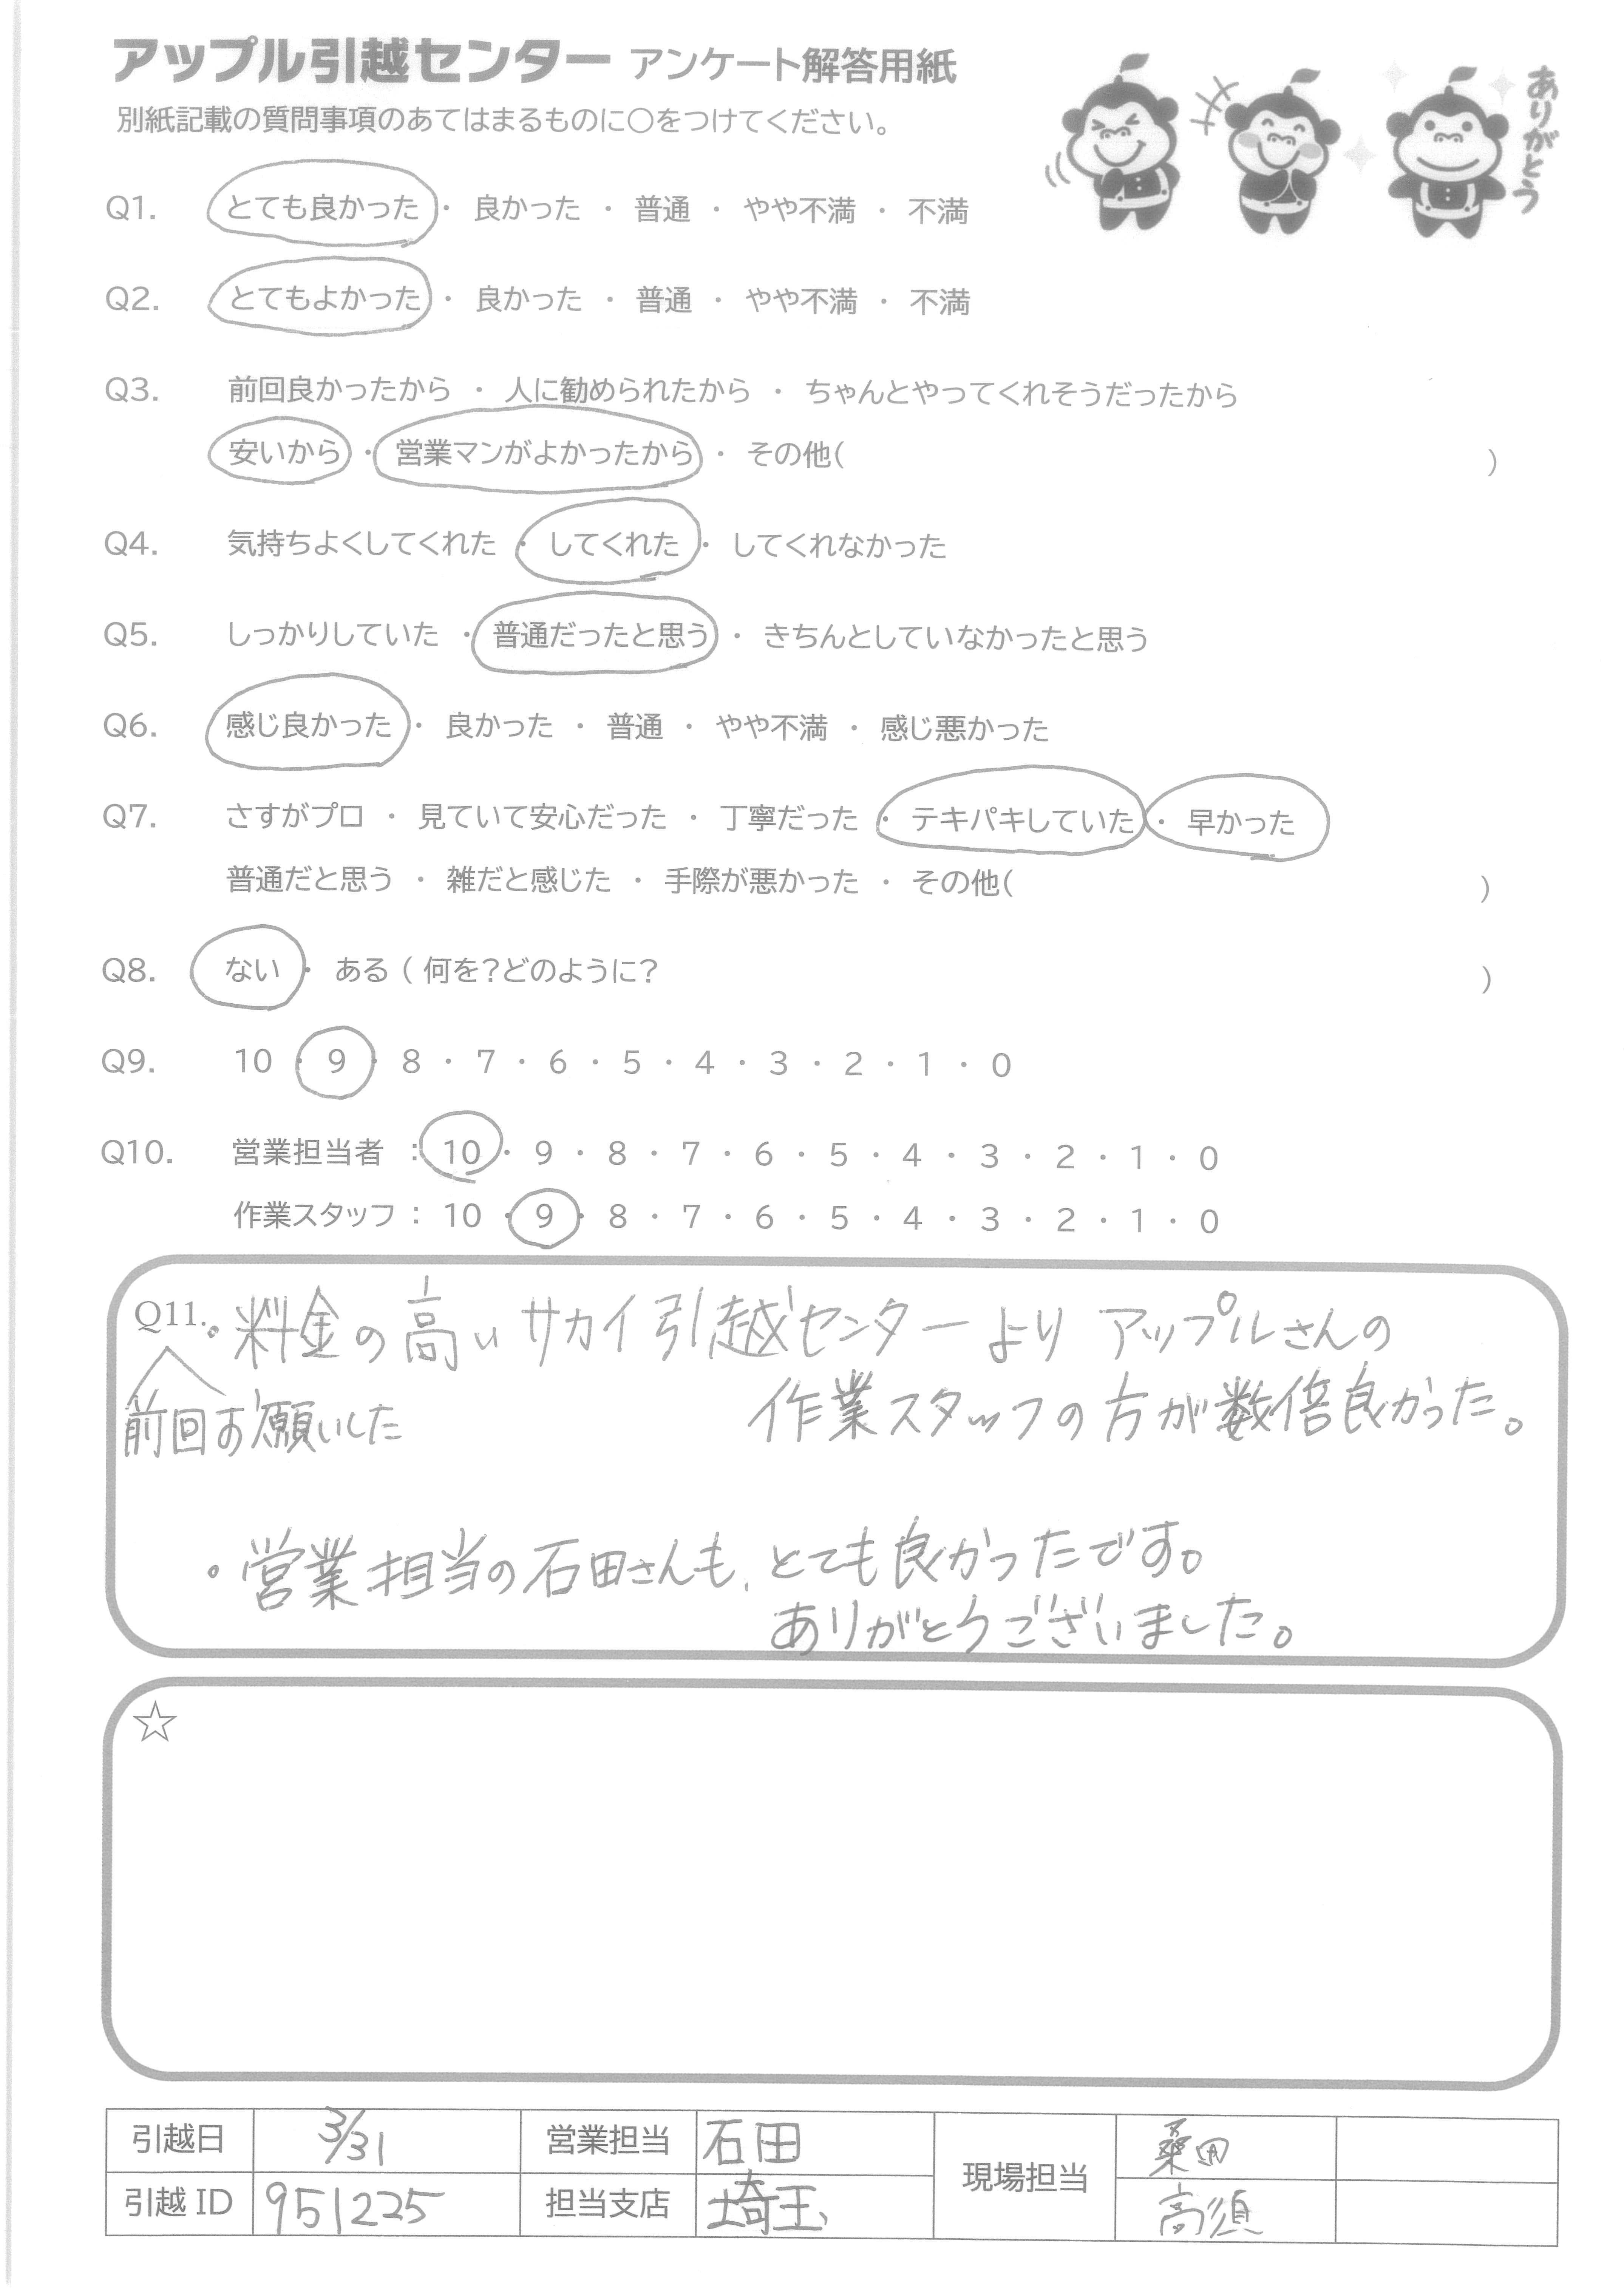 アップル引越センター アンケート解答用紙
別紙記載の質問事項のあてはまるものに○をつけてください。
ありがとう
Q1. とても良かった ・ 良かった ・ 普通 ・ やや不満 ・ 不満
Q2. とてもよかった ・ 良かった ・ 普通 ・ やや不満 ・ 不満
Q3. 前回良かったから ・ 人に勧められたから ・ ちゃんとやってくれそうだったから
安いから ・ 営業マンがよかったから ・ その他( )
Q4. 気持ちよくしてくれた ・ してくれた ・ してくれなかった
Q5. しっかりしていた ・ 普通だったと思う ・ きちんとしていなかったと思う
Q6. 感じ良かった ・ 良かった ・ 普通 ・ やや不満 ・ 感じ悪かった
Q7. さすがプロ ・ 見ていて安心だった ・ 丁寧だった ・ テキパキしていた ・ 早かった
普通だと思う ・ 雑だと感じた ・ 手際が悪かった ・ その他( )
Q8. ない ・ ある ( 何を?どのように? )
Q9. 10 ・ 9 ・ 8 ・ 7 ・ 6 ・ 5 ・ 4 ・ 3 ・ 2 ・ 1 ・ 0
Q10. 営業担当者 : 10 ・ 9 ・ 8 ・ 7 ・ 6 ・ 5 ・ 4 ・ 3 ・ 2 ・ 1 ・ 0
作業スタッフ : 10 ・ 9 ・ 8 ・ 7 ・ 6 ・ 5 ・ 4 ・ 3 ・ 2 ・ 1 ・ 0
Q11. ・料金の高いサカイ引越センターより アップルさんの
前回お願いした 作業スタッフの方が数倍良かった。
・営業担当の石田さんも、とても良かったです。
ありがとうございました。
☆
引越日 3/31 営業担当 石田 現場担当 桑田
引越ID 951225 担当支店 埼玉 高須